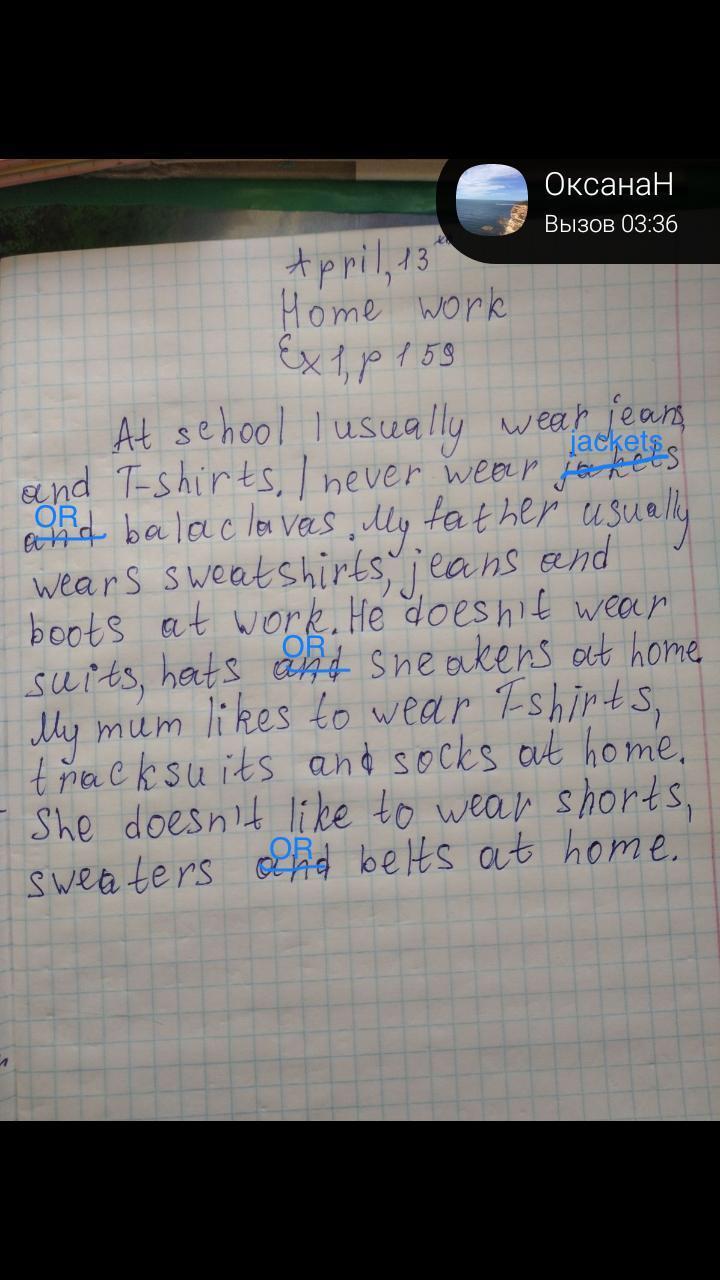 ОксанаН
Вызов 03:36
April, 13th
Home work
Ex 1, p 159
At school I usually wear jeans
jackets
and T-shirts. I never wear jakets
OR
and balaclavas. My father usually
wears sweatshirts, jeans and
boots at work. He doesn't wear
OR
suits, hats and sneakers at home.
My mum likes to wear T-shirts,
tracksuits and socks at home.
She doesn't like to wear shorts,
OR
sweaters and belts at home.